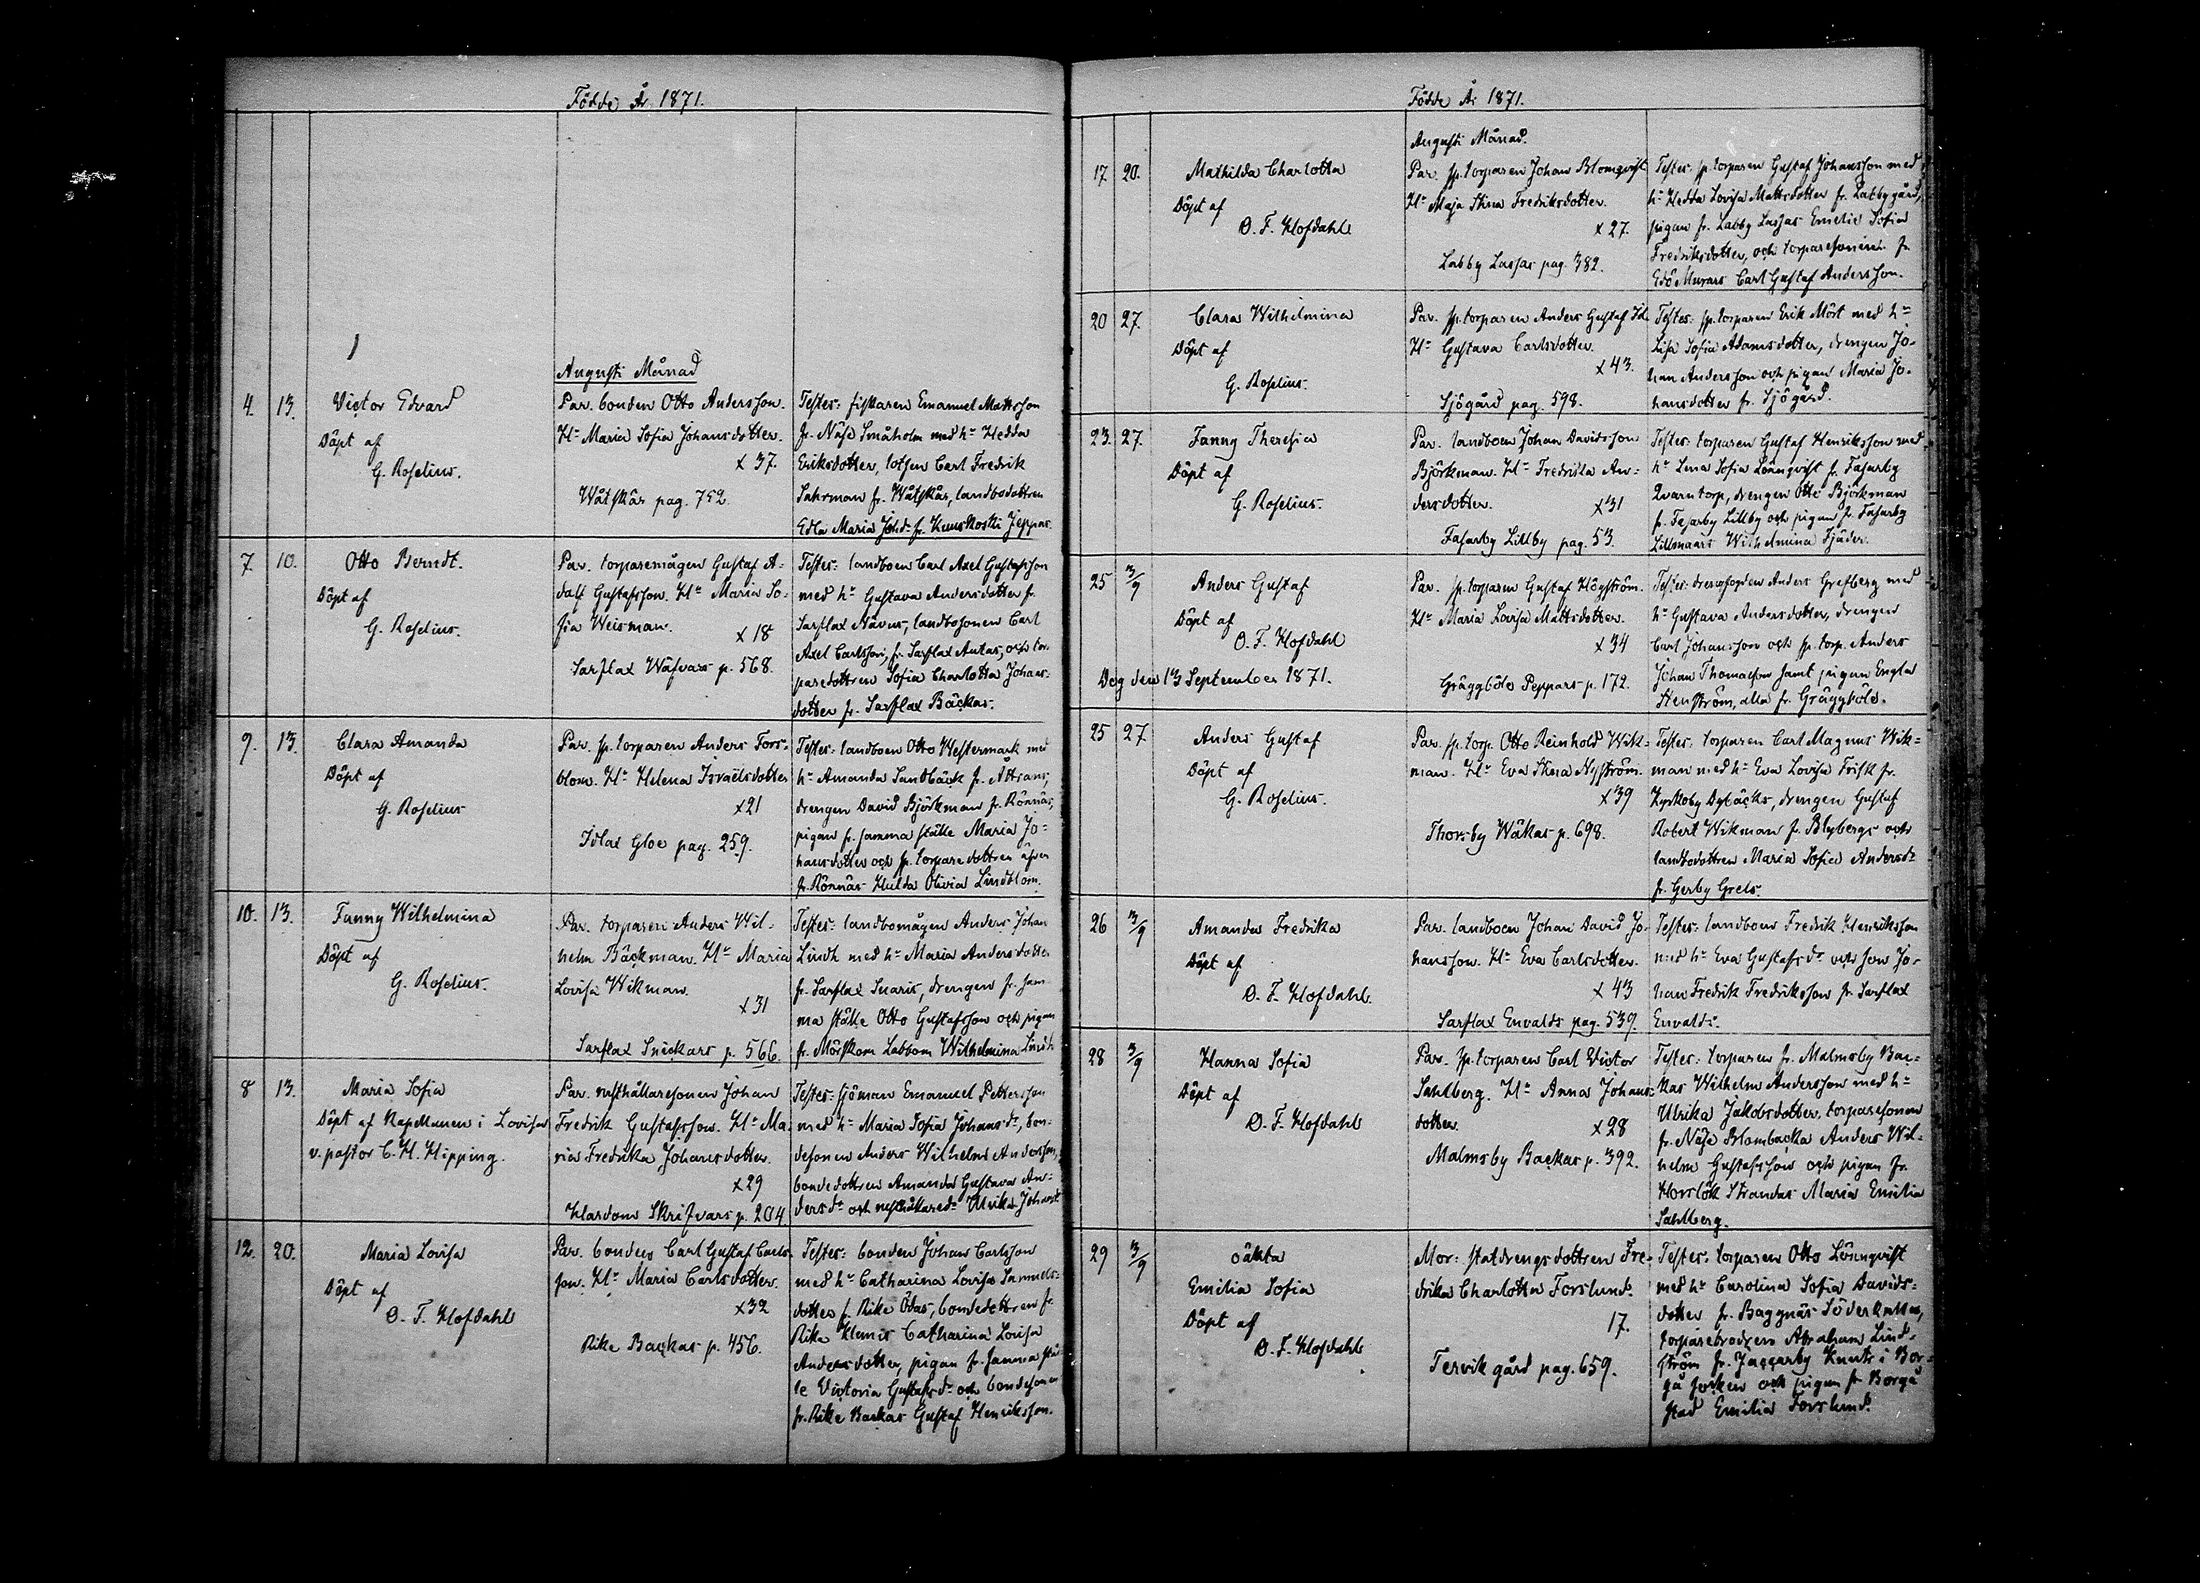 Födde År 1871.
Augusti Månad
4. 13. Victor Edvard
Döpt af
G. Roselius.
Par. bonden Otto Andersson.
H:u Maria Sofia Johansdotter.
x 37.
Wåtskär pag. 752.
Testes: fiskaren Emanuel Mattsson
fr. Näse Småholm med h:u Hedda
Eriksdotter, lotsen Carl Fredrik
Sahrman fr. Wåtskär, landbodottren
Edla Maria Joh:d:r fr. Kuuskoski Jeppas.
7. 10. Otto Berndt.
Döpt af
G. Roselius.
Par. torparemågen Gustaf A-
dolf Gustafsson. H:u Maria So-
fia Weisman.
x 18
Sarflax Wäfvars p. 568.
Testes: landboen Carl Axel Gustafsson
med h:u Gustava Andersdotter fr.
Sarflax Nävus, landbosonen Carl
Axel Carlsson, fr. Sarflax Antas, och tor-
paredottren Sofia Charlotta Johans-
dotter fr. Sarflax Bäckas.
9. 13. Clara Amanda
Döpt af
G. Roselius
Par. sp. torparen Anders Fors-
blom. H:u Helena Israelsdotter
x 21
Idlax Gloe pag. 259.
Testes: landboen Otto Westermark med
h:u Amanda Sandbäck fr.
drengen David Björkman fr. Rönnäs,
pigan fr. samma ställe Maria Jo-
hansdotter och sp. torparedottren äfven
fr. Rönnäs Hulda Olivia Lindblom.
10. 13. Fanny Wilhelmina
Döpt af
G. Roselius.
Par. torparen Anders Wil-
helm Bäckman. H:u Maria
Lovisa Wikman.
x 31
Sarflax Snickars p. 566.
Testes: landbomågen Anders Johan
Lindh med h:u Maria Andersdotter
fr. Sarflax Snaris, drengen fr. sam-
ma ställe Otto Gustafsson och pigan
fr. Mörskom Labbom Wilhelmina Lindh
8 13. Maria Sofia
Döpt af Kapellanen i Lovisa
v. pastor C. H. Hipping.
Par. rusthållaresonen Johan
Fredrik Gustafsson. H:u Ma-
ria Fredrika Johansdotter.
x 29
Hardom Skrifvars p. 204
Testes: sjöman Emanuel Pettersson
med h:u Maria Sofia Johansd:r, bon-
desonen Anders Wilhelm Andersson,
bondedottren Amanda Gustava An-
dersd:r och rusthållared:r Ulrika Johansd:r
12. 20. Maria Lovisa
Döpt af
O. F. Hofdahl
Par. bonden Carl Gustaf Carls-
son. H:u Maria Carlsdotter.
x 32
Rike Backas p. 456.
Testes: bonden Johan Carlsson
med h:u Catharina Lovisa Samuels-
dotter fr. Rike Ödas, bondedottren fr.
Rike Klemis Catharina Lovisa
Andersdotter, pigan fr. samma stäl-
le Victoria Gustafsd:r och bondesonen
fr. Rike Backas Gustaf Henriksson.
Födde År 1871.
Augusti Månad.
17. 20. Mathilda Charlotta
Döpt af
O. F. Hofdahl
Par. sp. torparen Johan Blomqvist
H:u Maja Stina Fredriksdotter.
x 27.
Labby Lassas pag. 382.
Testes: sp. torparen Gustaf Johansson med
h:u Hedda Lovisa Mattsdotter fr. Labbygård,
pigan fr. Labby Lassas Emelie Sofia
Fredriksdotter, och torparesonen fr.
Edö Murars Carl Gustaf Andersson.
20 27. Clara Wilhelmina
Döpt af
G. Roselius.
Par. sp. torparen Anders Gustaf
H:u Gustava Carlsdotter.
x 43.
Sjögård pag. 598.
Testes: sp. torparen Erik Mört med h:u
Lisa Sofia Adamsdotter, drengen Jo-
han Andersson och pigan Maria Jo-
hansdotter fr. Sjögård.
23. 27. Fanny Theresia
Döpt af
G. Roselius.
Par. landboen Johan Davidsson
Björkman. H:u Fredrika An-
dersdotter.
x 31
Fasarby Lillby pag. 53.
Testes: torparen Gustaf Henriksson med
h:u Lena Sofia Lönnqvist fr. Fasarby
Qvarntorp, drengen Otto Björkman
fr. Fasarby Lillby och pigan fr. Fasarby
Lillmaars Wilhelmina Fjäder.
25 3/9 Anders Gustaf
Döpt af
O. F. Hofdahl
Dog den 13 September 1871.
Par. sp. torparen Gustaf Högström.
H:u Maria Lovisa Mattsdotter.
x 34
Gräggböle Peppars p. 172.
Testes: drengfogden Anders Grefberg med
h:u Gustava Andersdotter, drengen
Carl Johansson och sp. torp. Anders
Johan Thomasson samt pigan Engla
Stenström, alla fr. Gräggböle.
25 27 Anders Gustaf
Döpt af
G. Roselius.
Par. sp. torp. Otto Reinhold Wik-
man. H:u Eva Stina Nyström.
x 39
Thorsby Wäkas p. 698.
Testes: torparen Carl Magnus Wik-
man med h:u Eva Lovisa Frisk fr.
Kyrkoby Dybäcks, drengen Gustaf
Robert Wikman fr. Blybergs och
landbodottren Maria Sofia Andersd:r
fr. Gerby Grels.
26 3/9 Amanda Fredrika
Döpt af
O. F. Hofdahl.
Par. landboen Johan David Jo-
hansson. H:u Eva Carlsdotter.
x 43
Sarflax Envalds pag. 539.
Testes: landboen Fredrik Henriksson
med h:u Eva Gustafsd:r och son Jo-
han Fredrik Fredriksson fr. Sarflax
Envalds.
28 3/9 Hanna Sofia
Döpt af
O. F. Hofdahl
Par. sp. torparen Carl Victor
Sahlberg. H:u Anna Johans-
dotter.
x 28
Malmsby Backas p. 392.
Testes: torparen fr. Malmsby Bac-
kas Wilhelm Andersson med h:u
Ulrika Jakobsdotter, torparesonen
fr. Näse Blombacka Anders Wil-
helm Gustafsson och pigan fr.
Horslök Strandas Maria Emilia
Sahlberg.
29 3/9 oäkta
Emilia Sofia
Döpt af
O. F. Hofdahl
Mor: statdrengsdottren Fre-
drika Charlotta Forslund.
17.
Tervik gård pag. 659.
Testes: torparen Otto Lönnqvist
med h:u Carolina Sofia Davids-
dotter fr. Baggnäs Söderkulla,
torparebrodren Abraham Lind-
ström fr. Jaggarby Knuts i Bor-
gå socken och pigan fr. Borgå
stad Emilia Forslund.